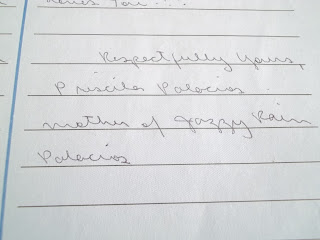 loves you...
Respectfully yours,
Priscilla Palacios
mother of Jazzy Rain
Palacios